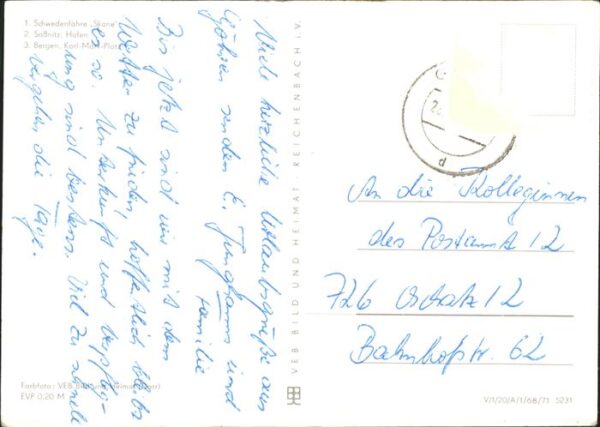 1. Schwedenfähre „Skåne"
2. Saßnitz, Hafen
3. Bergen, Karl-Marx-Platz
Viele herzliche Urlaubsgrüße aus
Göhren senden E. Junghanns und
Familie
Bis jetzt sind wir mit dem
Wetter zufrieden, hoffentlich bleibt
es so. Unterkunft und Verpfle-
gung sind bestens. Viel zu schnelle
vergehen die Tage.
Farbfoto: VEB Bild und Heimat
EVP 0,20 M
VEB BILD UND HEIMAT · REICHENBACH i. V.
An die Kolleginnen
des Postamts 12
726 Oschatz 12
Bahnhofstr. 62
V/1/20/A/1/68/71 5231